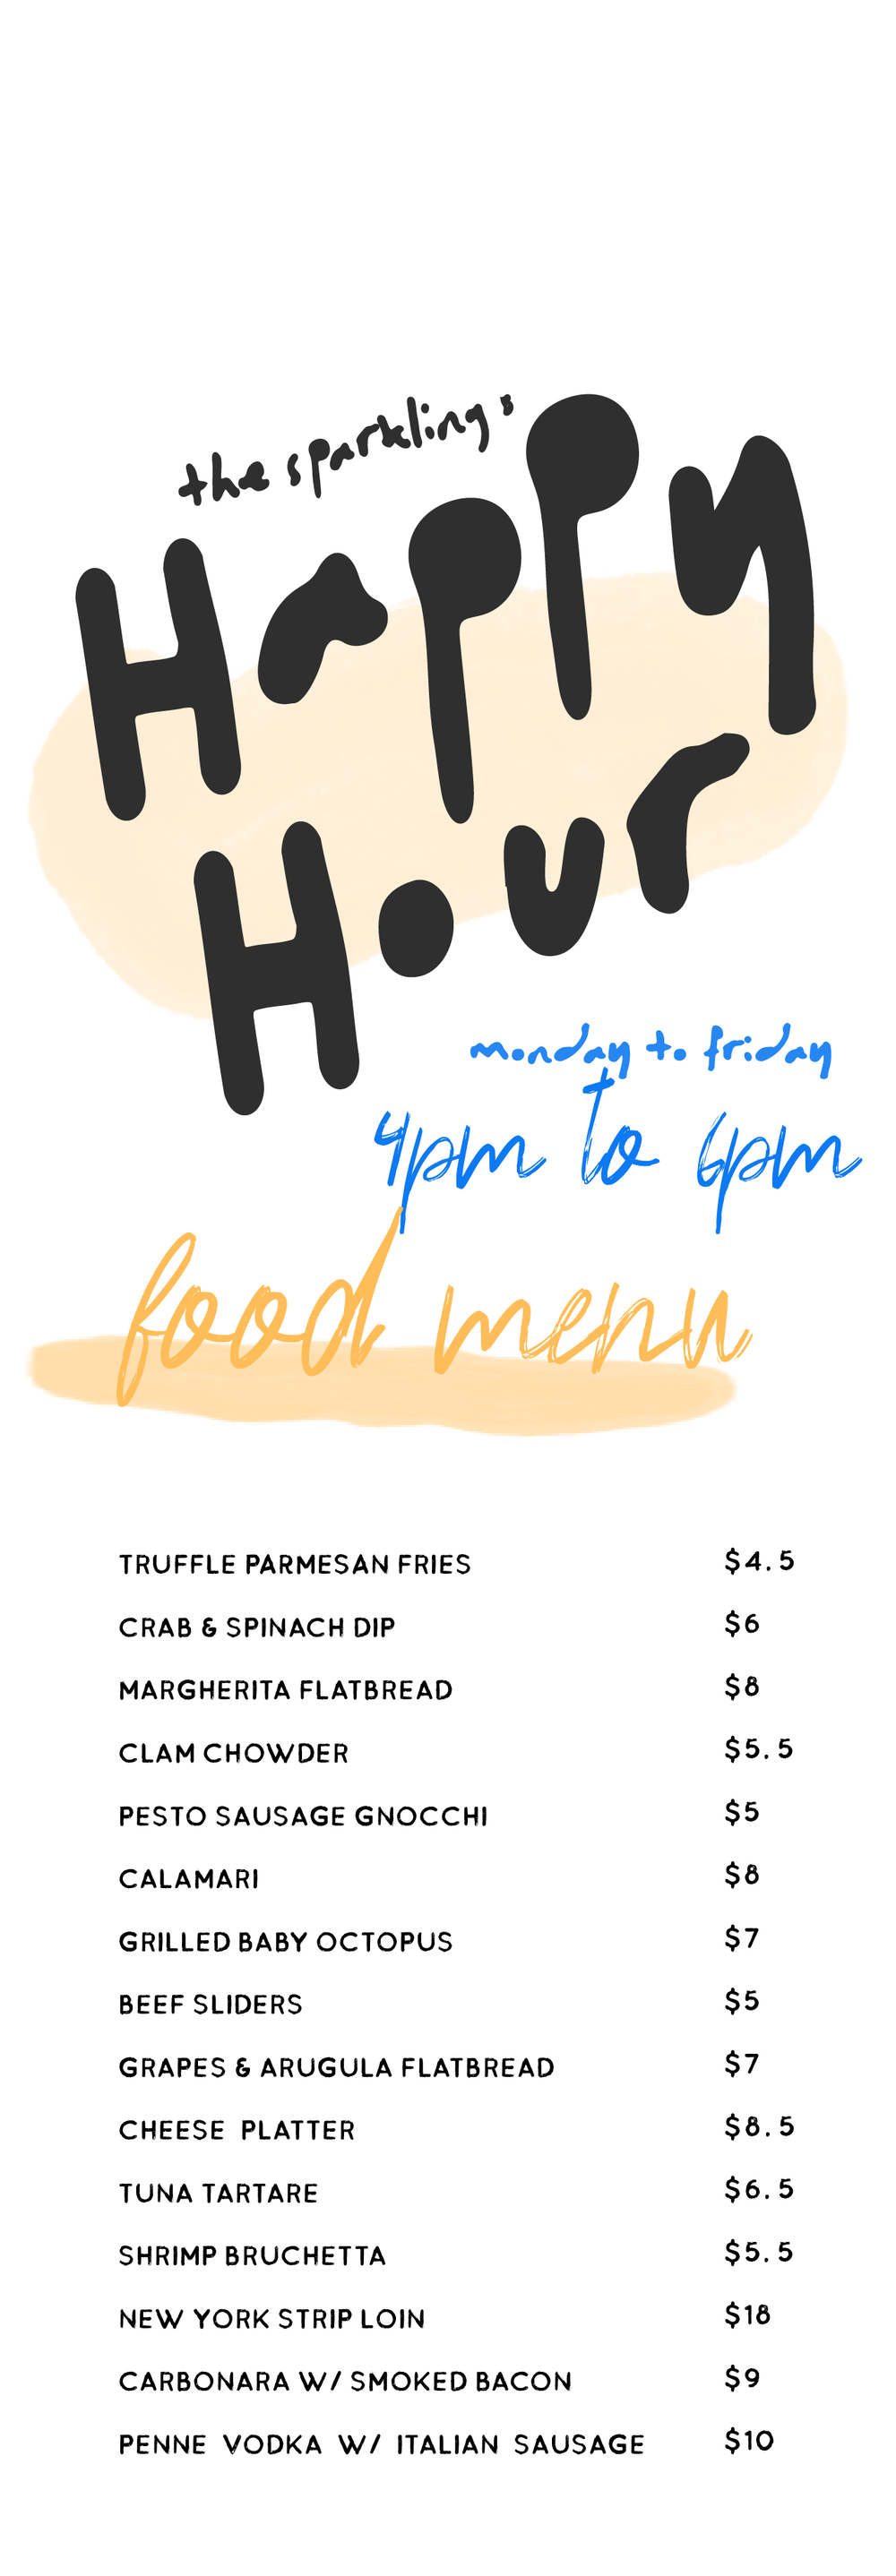 the sparkling's
Happy
Hour
monday to friday
4pm to 6pm
food menu
TRUFFLE PARMESAN FRIES $4.5
CRAB & SPINACH DIP $6
MARGHERITA FLATBREAD $8
CLAM CHOWDER $5.5
PESTO SAUSAGE GNOCCHI $5
CALAMARI $8
GRILLED BABY OCTOPUS $7
BEEF SLIDERS $5
GRAPES & ARUGULA FLATBREAD $7
CHEESE PLATTER $8.5
TUNA TARTARE $6.5
SHRIMP BRUCHETTA $5.5
NEW YORK STRIP LOIN $18
CARBONARA W/ SMOKED BACON $9
PENNE VODKA W/ ITALIAN SAUSAGE $10